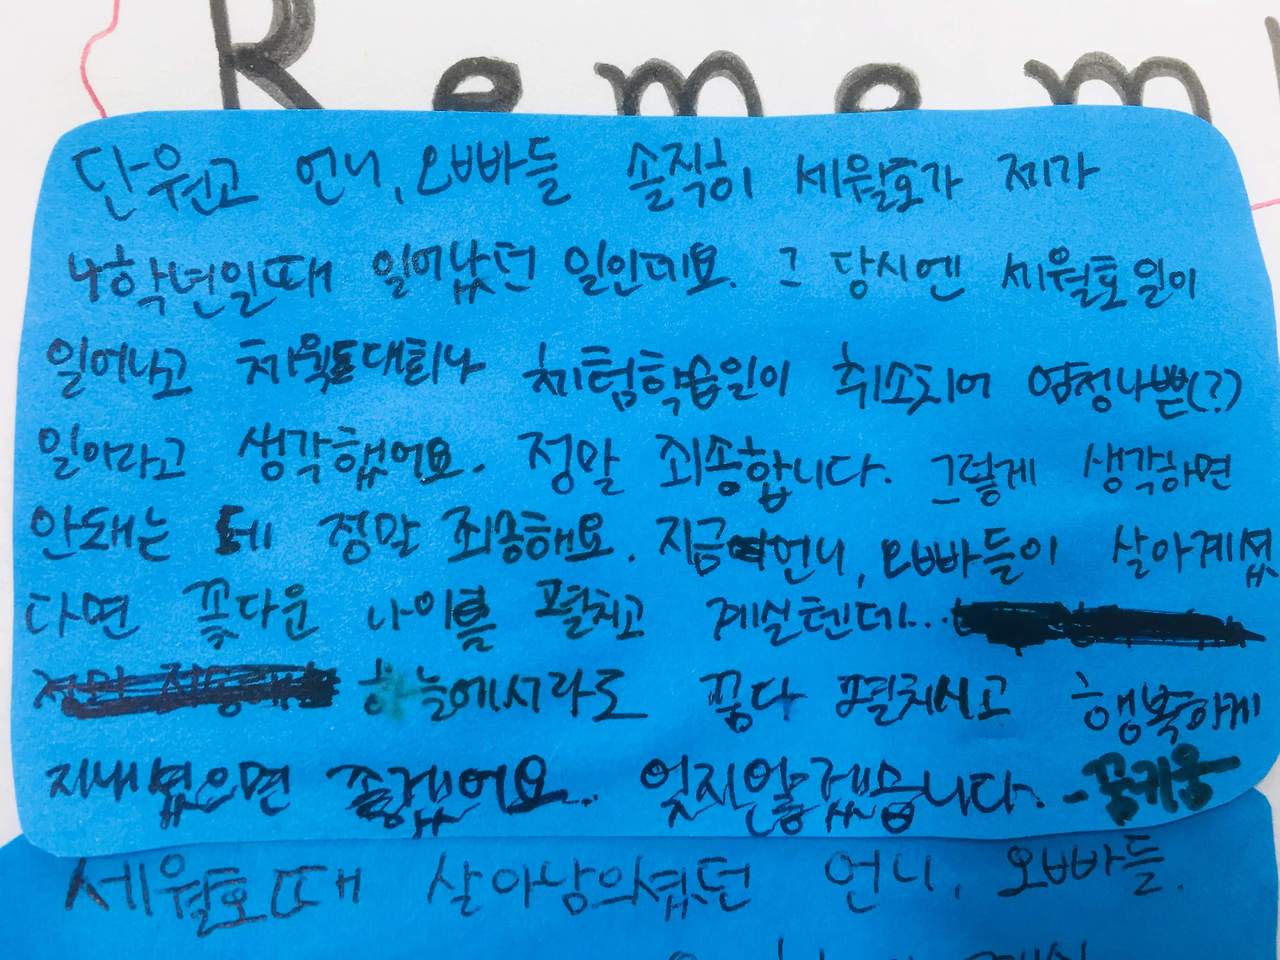 Remem
단원고 언니, 오빠들 솔직히 세월호가 제가
4학년일때 일어났던 일인데요. 그 당시엔 세월호일이
일어나고 체육대회나 체험학습일이 취소되어 엄청나쁜(?)
일아라고 생각했어요. 정말 죄송합니다. 그렇게 생각하면
안돼는 데 정말 죄송해요. 지금 언니, 오빠들이 살아계셨
다면 꽃다운 나이를 펼치고 계실텐데...
하늘에서라도 꿈다 펼치시고 행복하게
지내셨으면 좋겠어요.. 잊지안황겠습니다. -꿈키움
세월호때 살아남의셨던 언니, 오빠들.